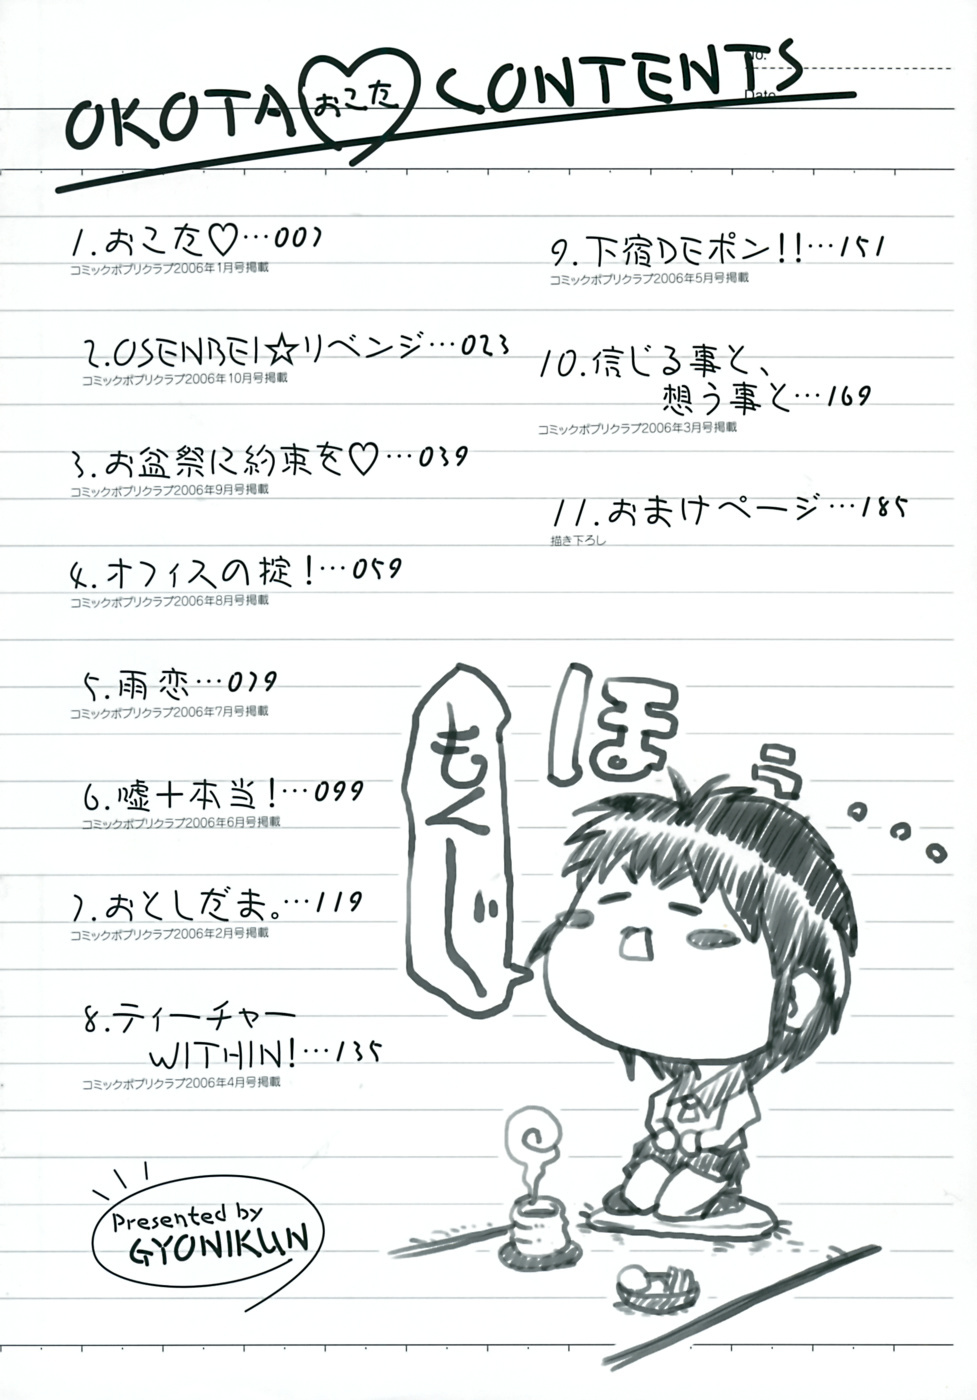 No.
Date
OKOTA おこた CONTENTS
1.おこた♡…007
コミックポプリクラブ2006年1月号掲載
2.OSENBEI☆リベンジ…023
コミックポプリクラブ2006年10月号掲載
3.お盆祭に約束を♡…039
コミックポプリクラブ2006年9月号掲載
4.オフィスの掟!…059
コミックポプリクラブ2006年8月号掲載
5.雨恋…079
コミックポプリクラブ2006年7月号掲載
6.嘘+本当!…099
コミックポプリクラブ2006年6月号掲載
7.おとしだま。…119
コミックポプリクラブ2006年2月号掲載
8.ティーチャー
WITHIN!…135
コミックポプリクラブ2006年4月号掲載
9.下宿DEポン!!…151
コミックポプリクラブ2006年5月号掲載
10.信じる事と、
想う事と…169
コミックポプリクラブ2006年3月号掲載
11.おまけページ…185
描き下ろし
もくじ
ほぅ
Presented by
GYONIKUN